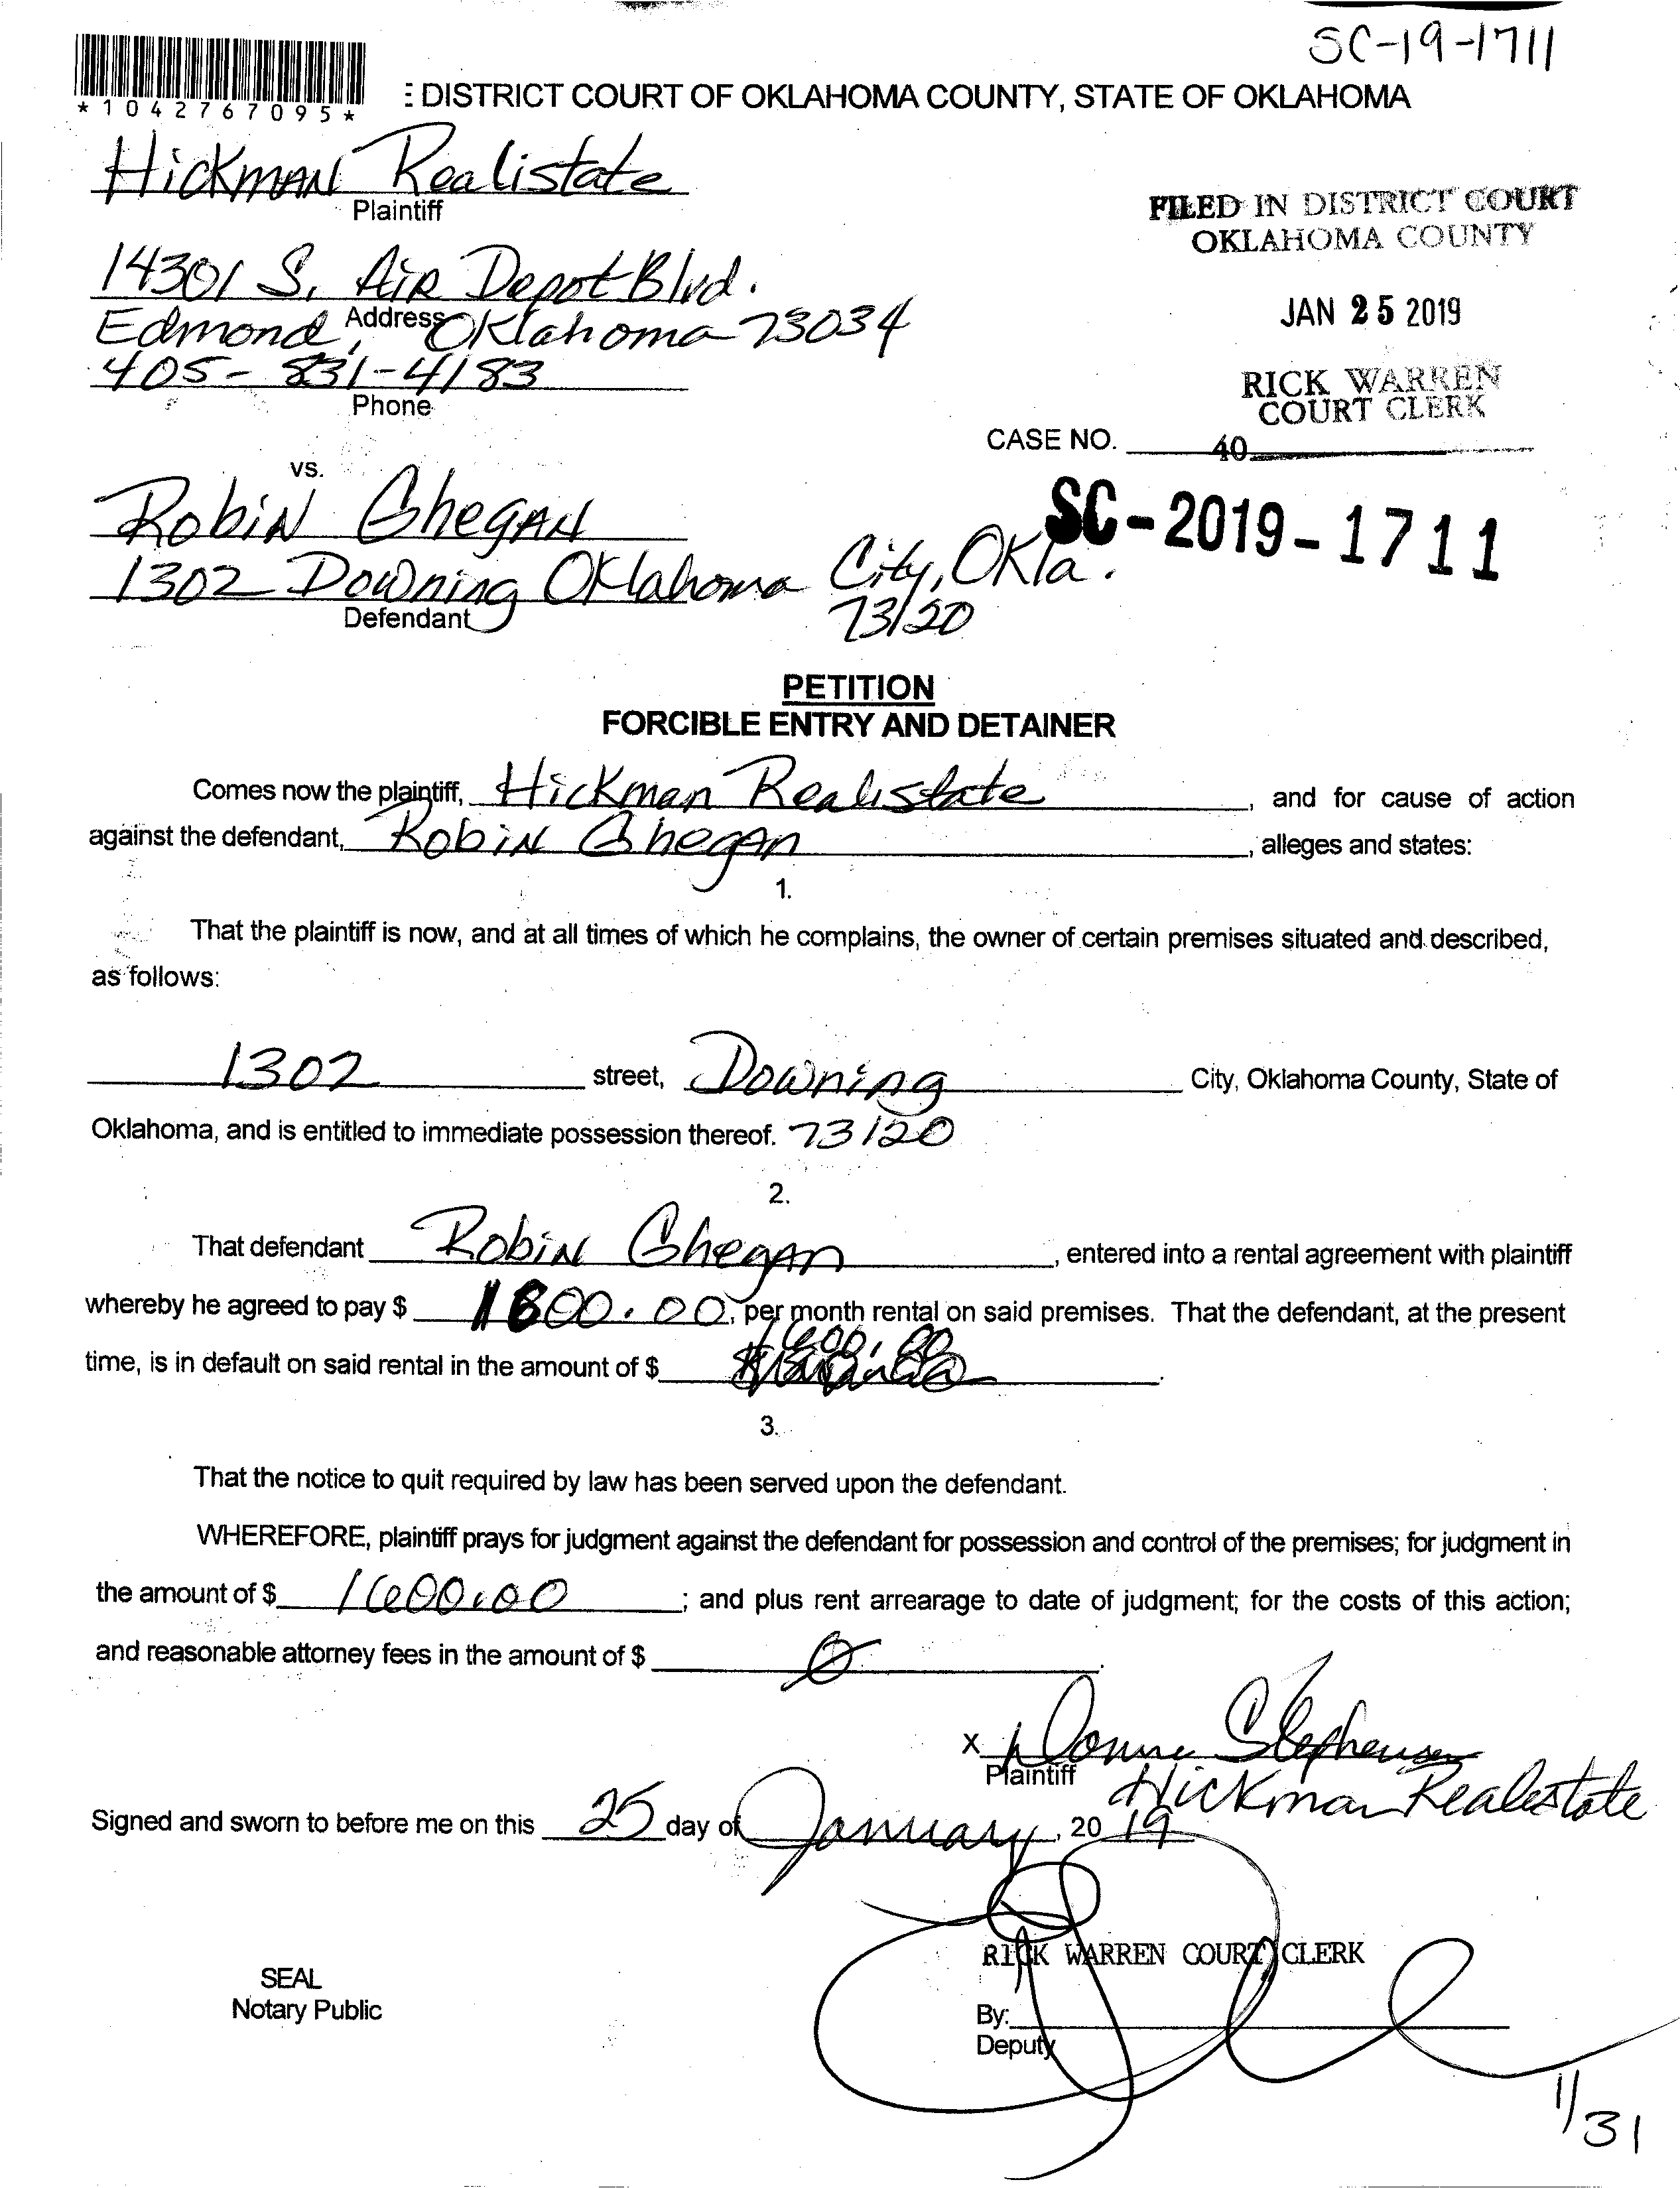 SC-19-1711
*1042767095*
E DISTRICT COURT OF OKLAHOMA COUNTY, STATE OF OKLAHOMA
Hickman Realistate
Plaintiff
FILED IN DISTRICT COURT
OKLAHOMA COUNTY
14301 S. Air Depot Blvd.
Address
Edmond, Oklahoma 73034
JAN 25 2019
405-831-4183
Phone
RICK WARREN
COURT CLERK
CASE NO.
40
vs.
SC-2019-1711
Robin Ghegan
1302 Downing Oklahoma City, Okla.
73120
Defendant
PETITION
FORCIBLE ENTRY AND DETAINER
Comes now the plaintiff, Hickman Realistate, and for cause of action
against the defendant, Robin Ghegan, alleges and states:
1.
That the plaintiff is now, and at all times of which he complains, the owner of certain premises situated and described,
as follows:
1302 street, Downing City, Oklahoma County, State of
Oklahoma, and is entitled to immediate possession thereof. 73120
2.
That defendant Robin Ghegan, entered into a rental agreement with plaintiff
whereby he agreed to pay $ 1600.00, per month rental on said premises. That the defendant, at the present
1600.00
time, is in default on said rental in the amount of $
3.
That the notice to quit required by law has been served upon the defendant.
WHEREFORE, plaintiff prays for judgment against the defendant for possession and control of the premises; for judgment in
the amount of $ 1600.00; and plus rent arrearage to date of judgment; for the costs of this action;
and reasonable attorney fees in the amount of $ 0.
x Donna Stephenson
Plaintiff
Hickman Realestate
Signed and sworn to before me on this 25 day of January, 2019
RICK WARREN COURT CLERK
SEAL
Notary Public
By:
Deputy
1/31